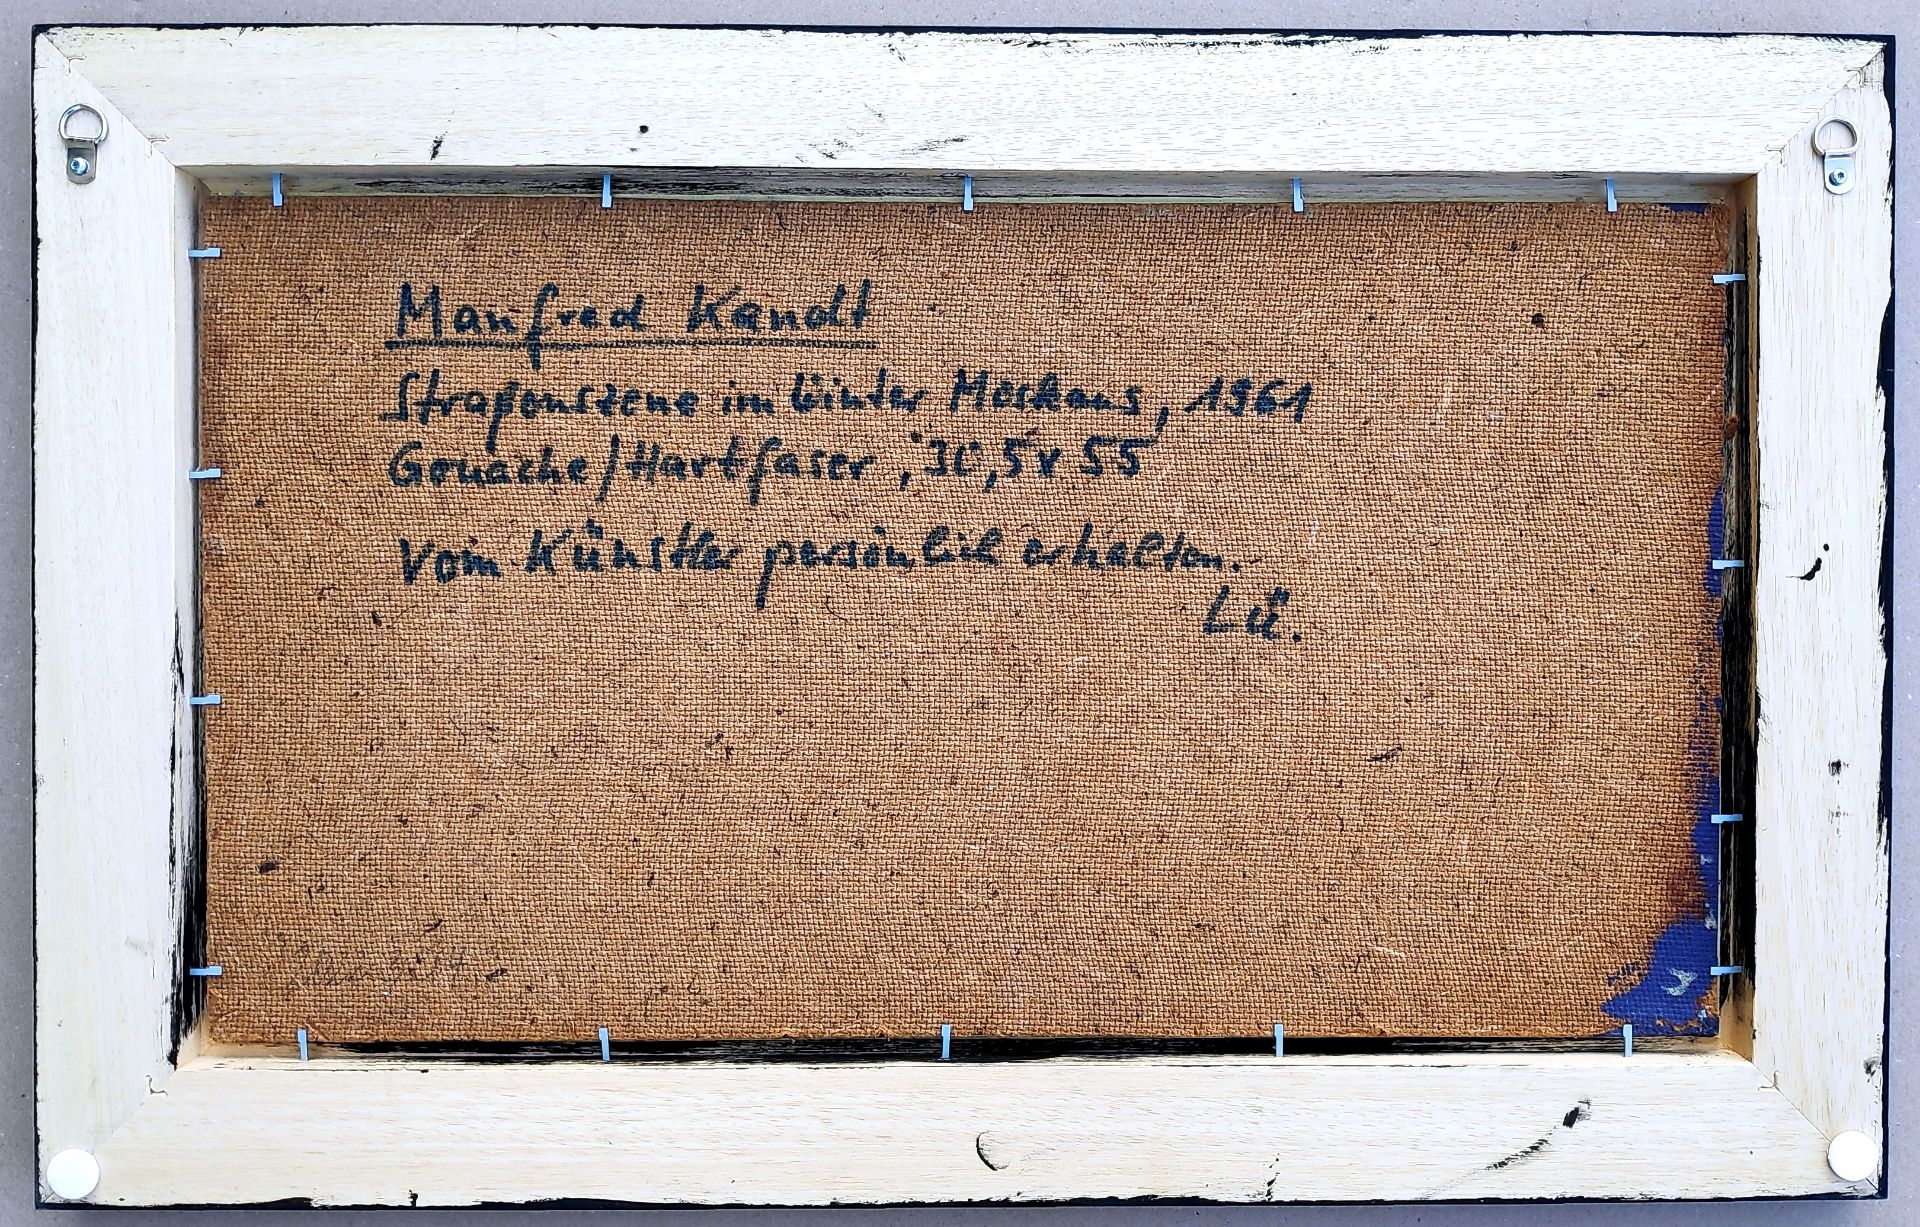 Manfred Kandt
Straßenszene im Winter Moskaus, 1961
Gouache/Hartfaser, 30,5 x 55
Vom Künstler persönlich erhalten.
Lü.